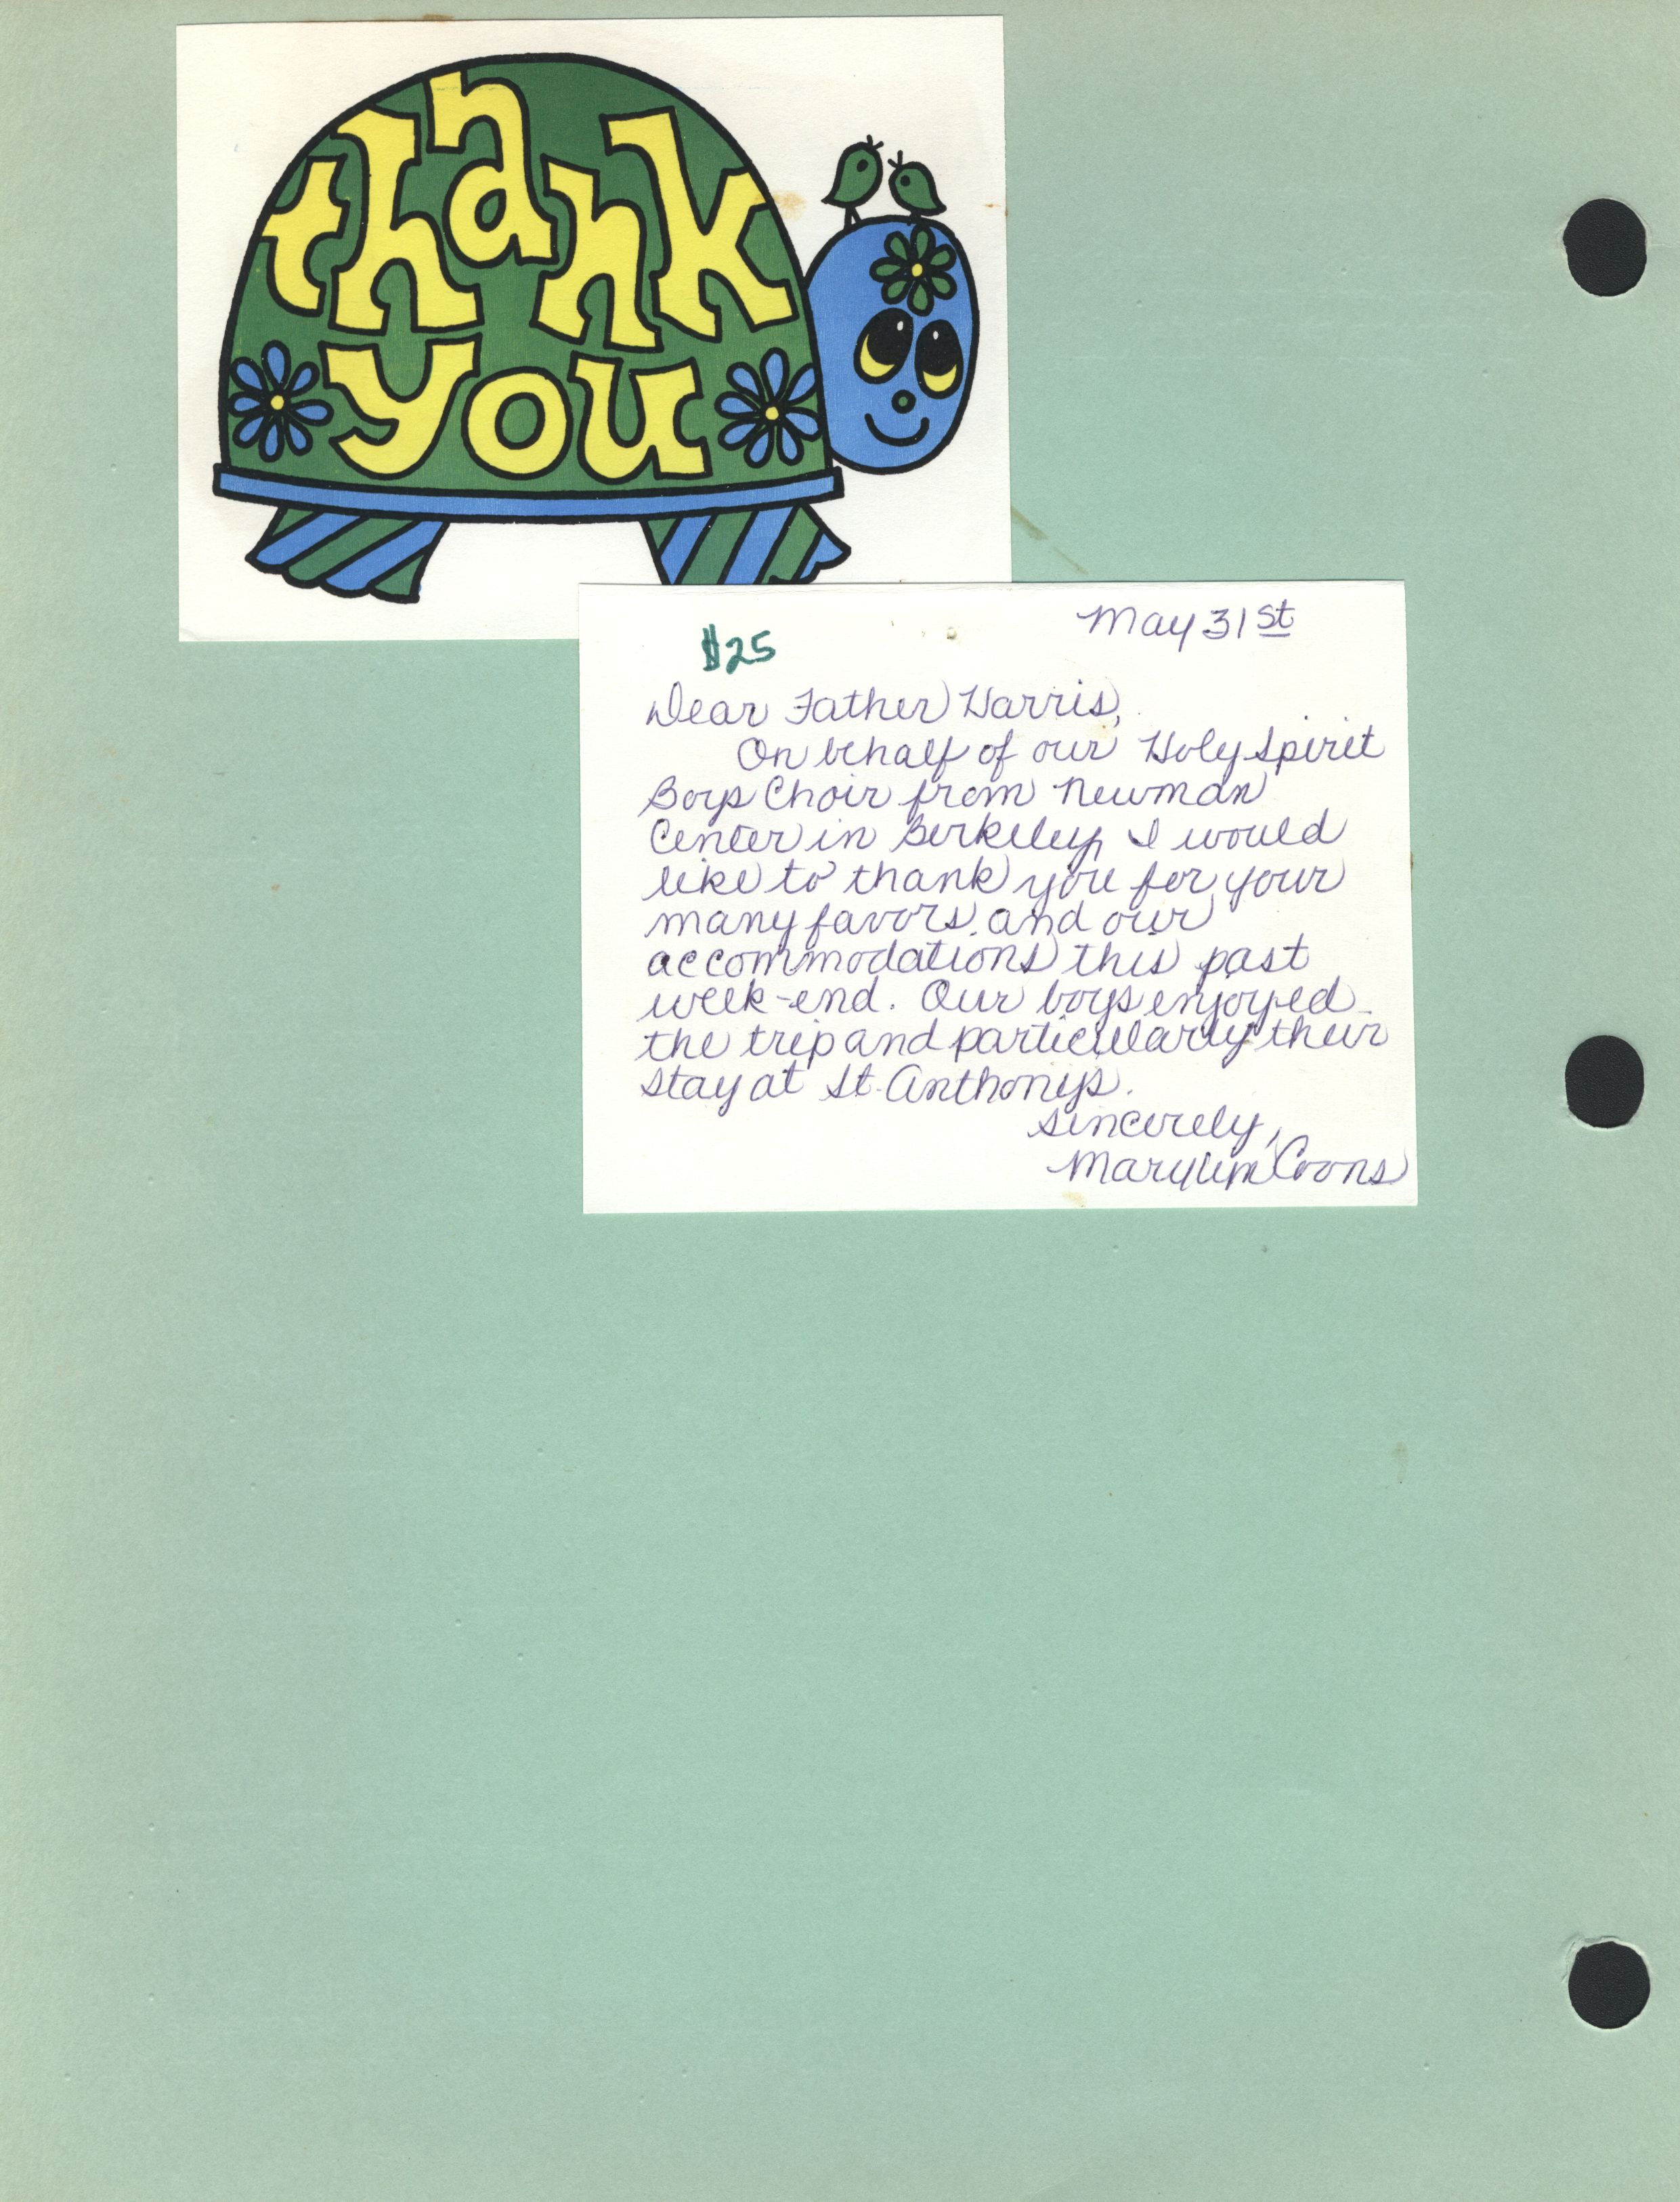 thank
you
May 31st
$25
Dear Father Harris,
On behalf of our Holy Spirit
Boys Choir from Newman
Center in Berkeley, I would
like to thank you for your
many favors and our
accommodations this past
week-end. Our boys enjoyed
the trip and particularly their
stay at St. Anthonys.
Sincerely,
Coons